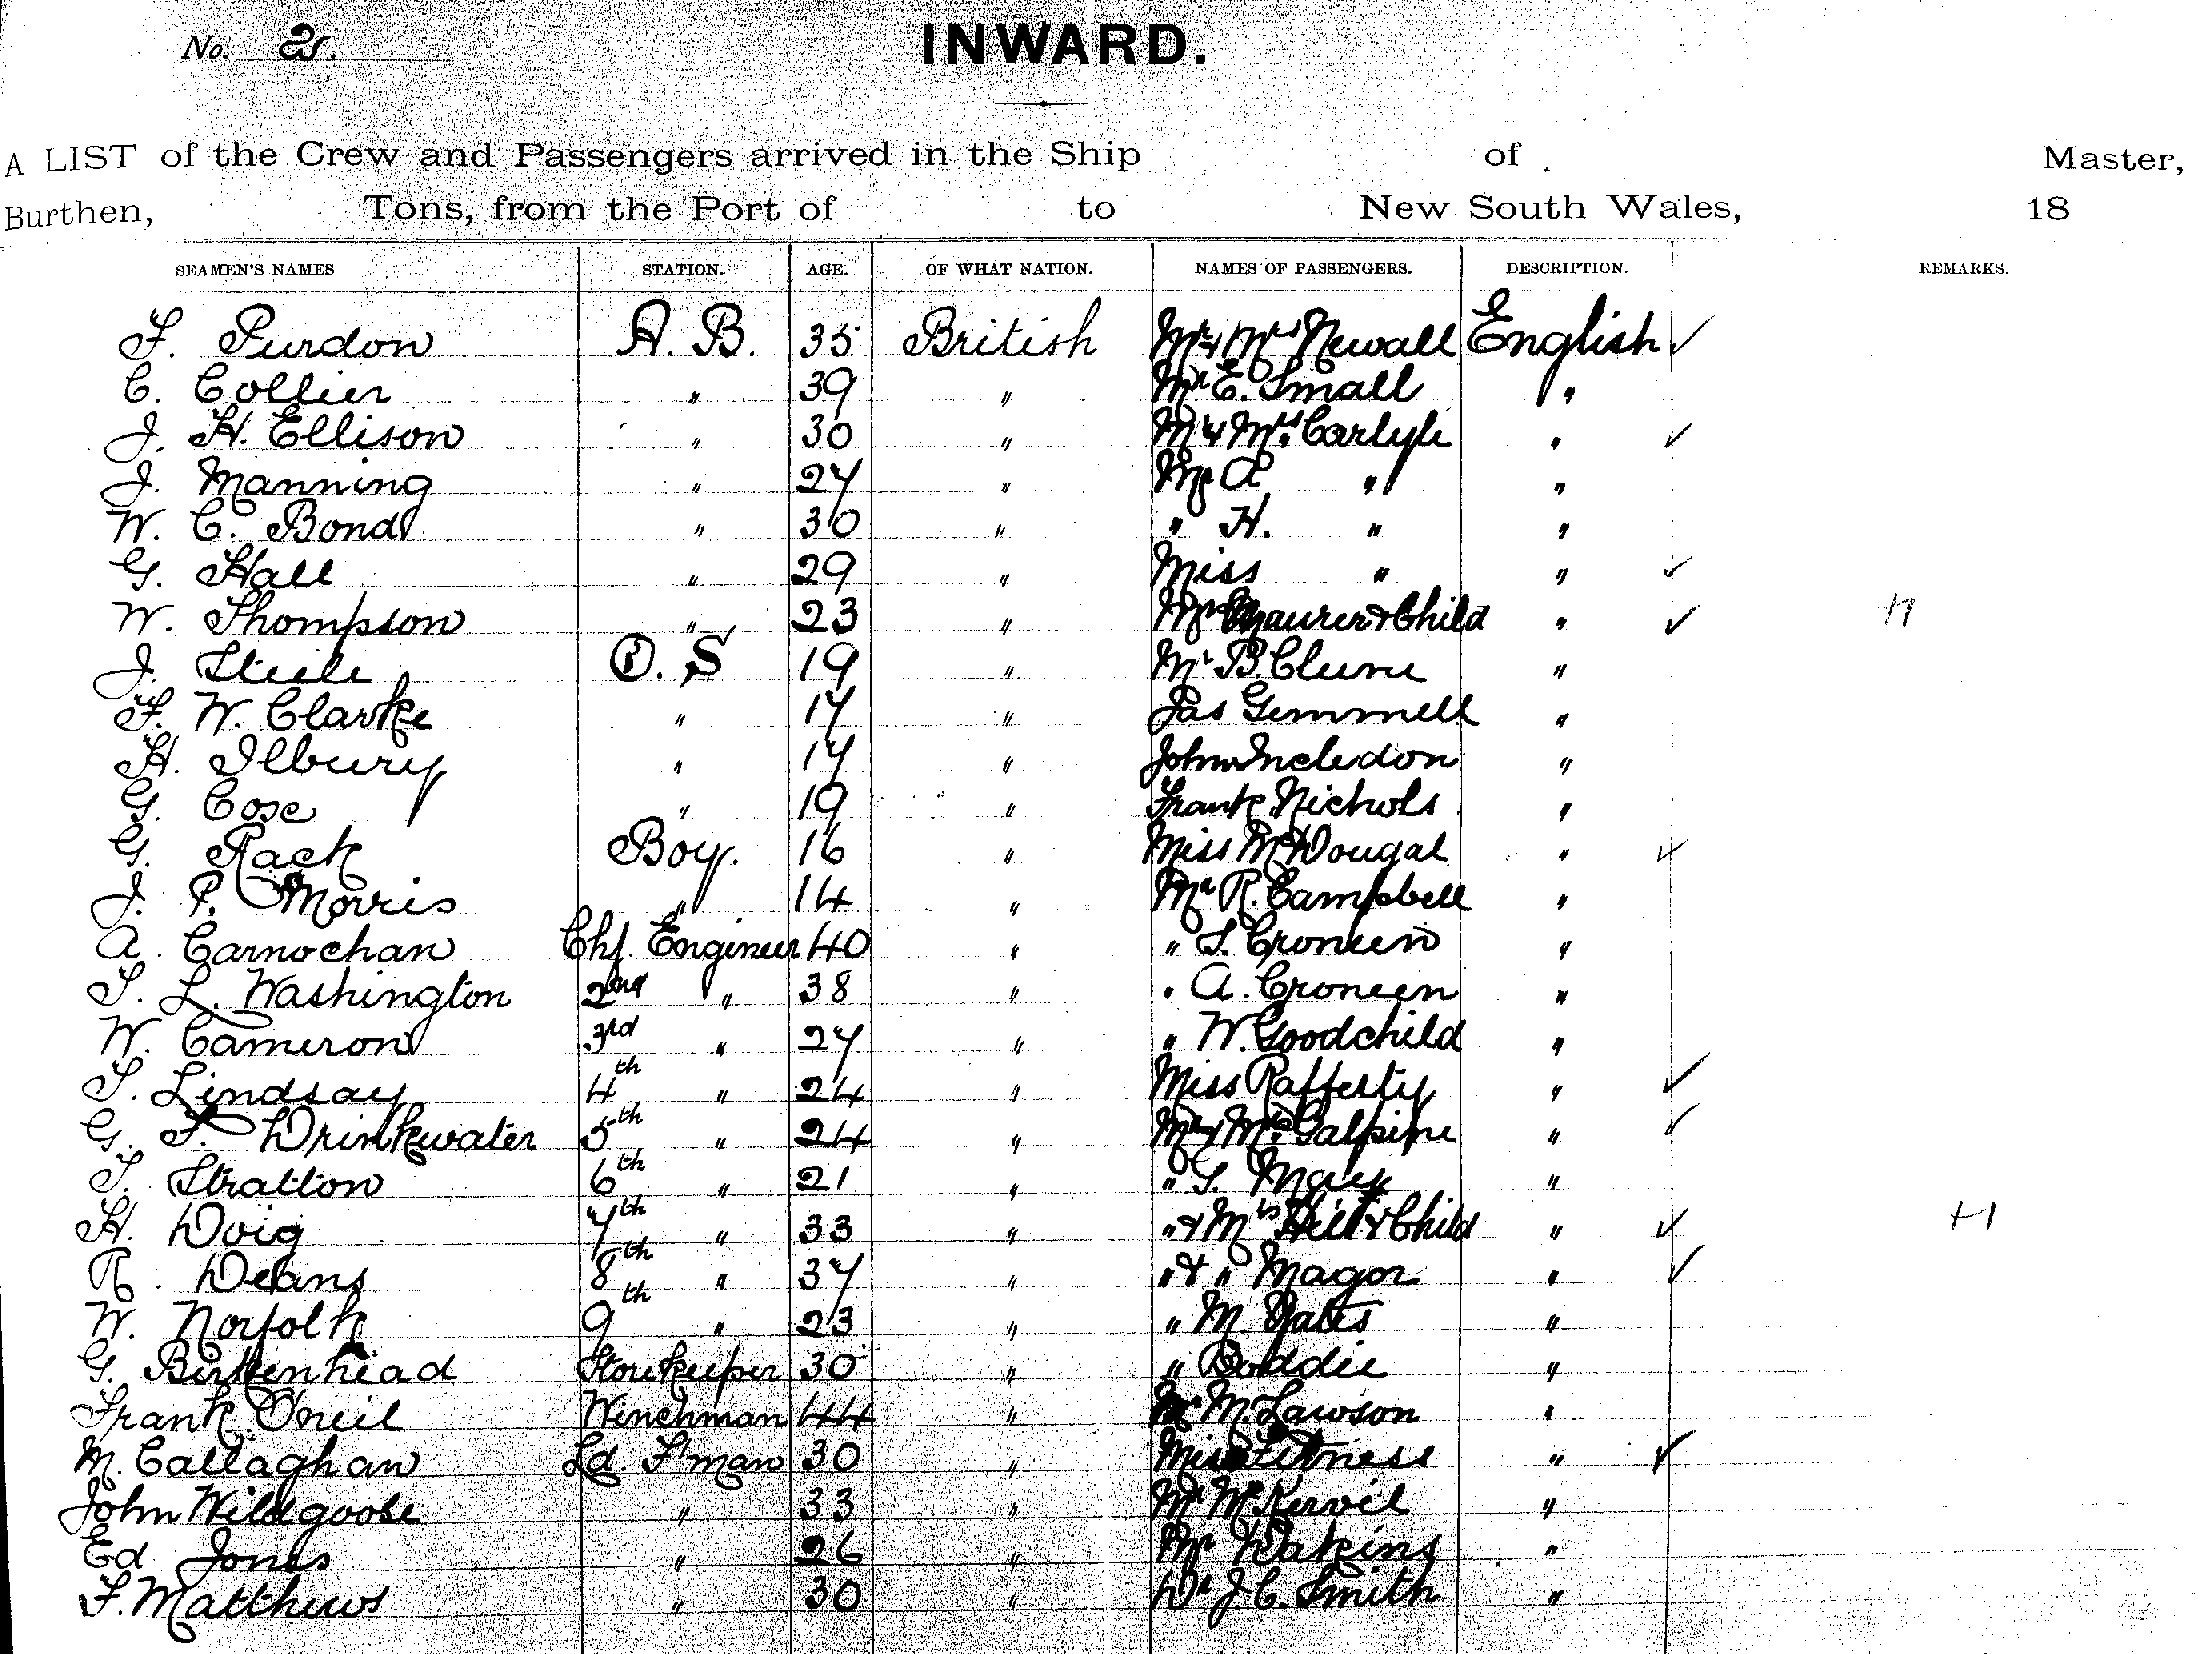 No. 2.
INWARD.
A LIST of the Crew and Passengers arrived in the Ship of Master,
Burthen, Tons, from the Port of to New South Wales, 18
SEAMEN'S NAMES STATION. AGE. OF WHAT NATION. NAMES OF PASSENGERS. DESCRIPTION. REMARKS.
F. Purdon A. B. 35 British Mr & Mrs Newall English ✓
C. Collier " 39 " Mr E. Small "
J. H. Ellison " 30 " Mr & Mrs Carlyle " ✓
J. Manning " 27 " Mr A " "
W. C. Bond " 30 " " H. " "
G. Hall " 29 " Miss " " ✓
W. Thompson " 23 " Mrs Maurer & Child " ✓
J. Steele O. S 19 " Mr B. Clune "
F. W. Clarke " 17 " Jas Gemmell "
H. Ilbury " 17 " John Incledon "
G. Cose " 19 " Frank Nichols "
G. Rack Boy. 16 " Miss McDougal " ✓
J. P. Morris " 14 " Mr R. Campbell "
A. Carnochan Chf. Engineer 40 " " S. Croneen "
T. L. Washington 2nd " 38 " " A. Croneen "
W. Cameron 3rd " 27 " " W. Goodchild "
T. Lindsay 4th " 24 " Miss Rafferty " ✓
G. F. Drinkwater 5th " 24 " Mr & Mrs Galpine " ✓
T. Stratton 6th " 21 " " G. "
H. Doig 7th " 33 " " & Mrs Hill & Child " ✓ +1
R. Deans 8th " 37 " " & " Magor " ✓
W. Norfolk 9th " 23 " " M Yates "
G. Birkenhead Storekeeper 30 " " Boddie "
Frank Oneil Winchman 44 " Mr M. Lawson "
M. Callaghan Ld. F'man 30 " Miss " ✓
John Wildgoose " 33 " Mr McKervil "
Ed Jones " 26 " Mr Dakins "
F. Matthews " 30 " Dr J. C. Smith "